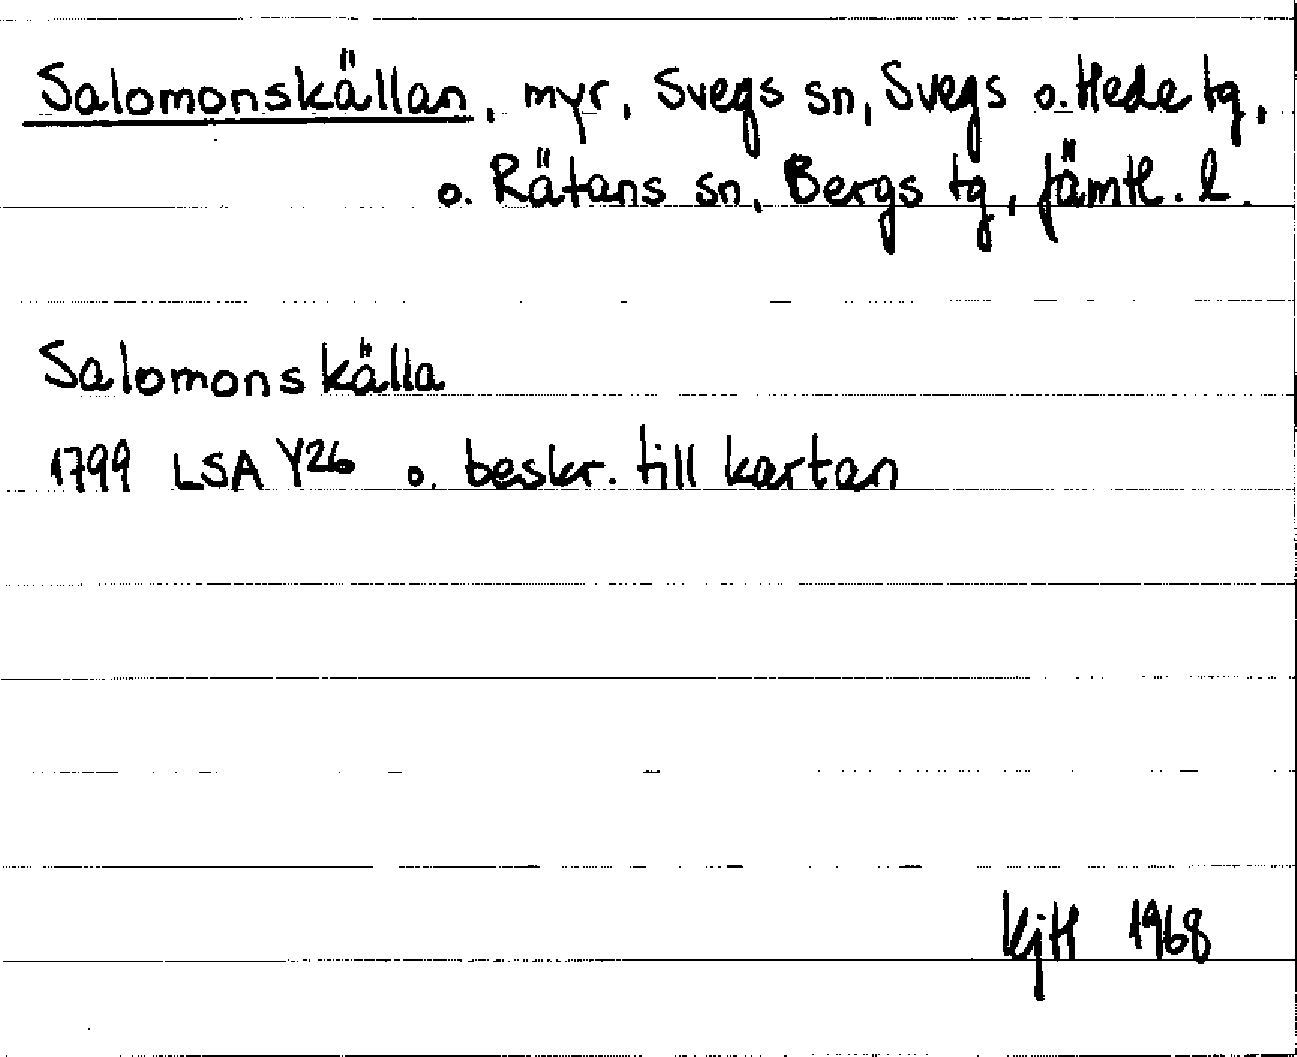 Salomonskällan, myr, Svegs sn, Svegs o. Hede tg,
o. Rätans sn, Bergs tg, Jämtl. l.
Salomonskälla
1799 LSA Y26 o. beskr. till kartan
KjH 1968